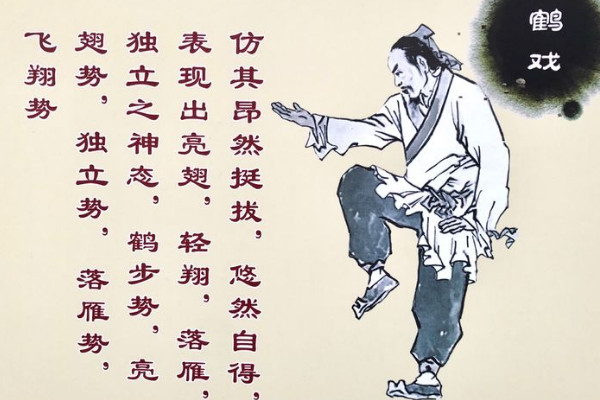 鹤戏
仿其昂然挺拔，悠然自得，
表现出亮翅，轻翔，落雁，
独立之神态，鹤步势，亮
翅势，独立势，落雁势，
飞翔势